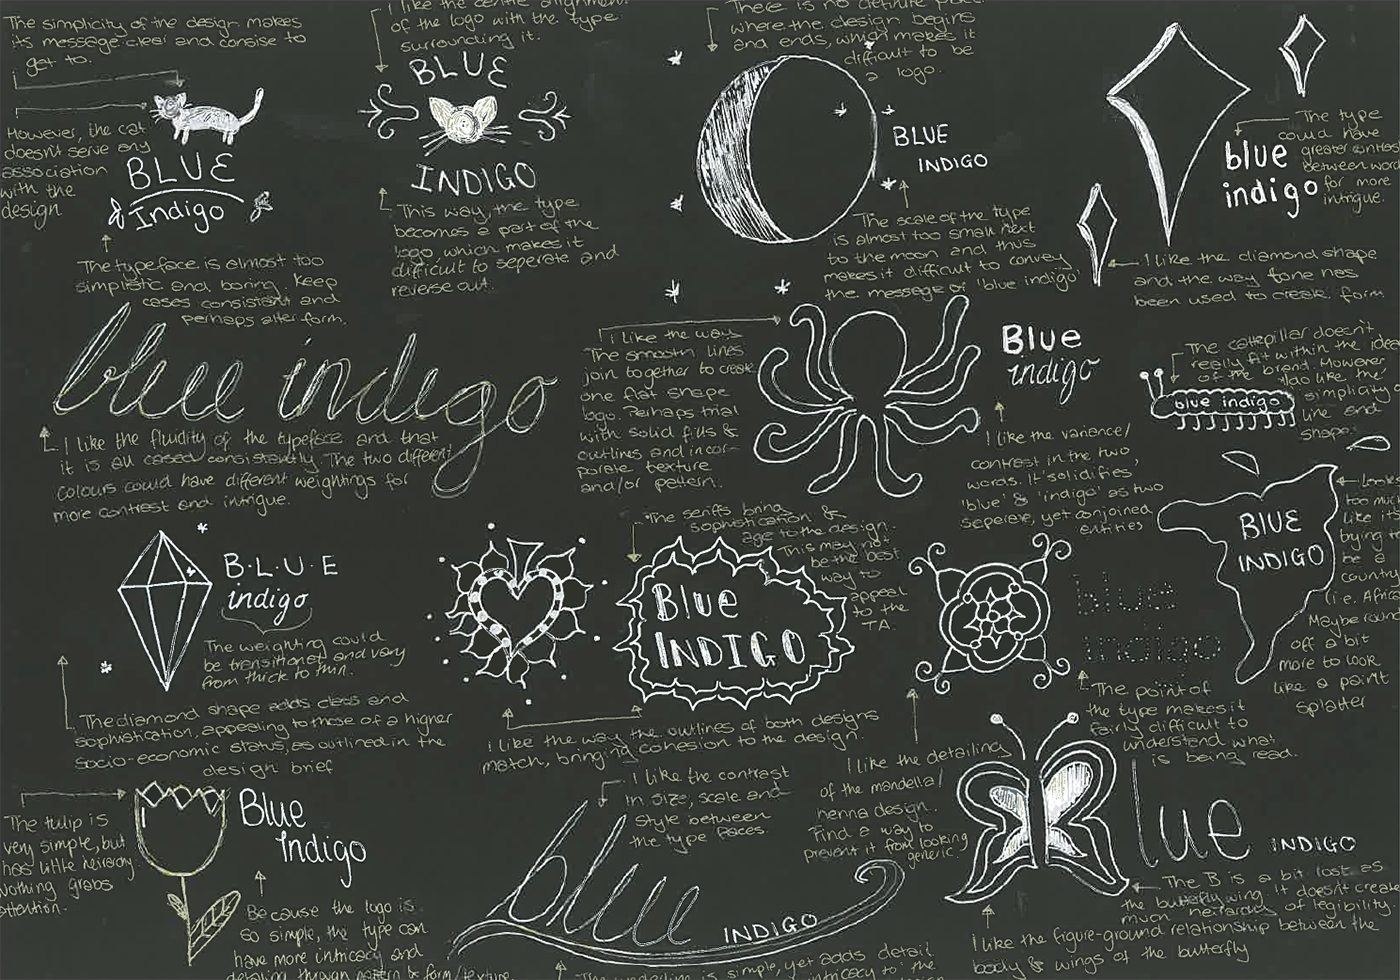 The simplicity of the design makes
its message clear and consise to
get to.
However, the cat
doesn't serve any
association
with the
design
BLUE
Indigo
The typeface is almost too
simplistic and boring. Keep
cases consistent and
perhaps alter form.
I like the centre alignment
of the logo with the type
surrounding it.
BLUE
INDIGO
This way, the type
becomes a part of the
logo, which makes it
difficult to seperate and
reverse out.
There is no definite place
where the design begins
and ends, which makes it
difficult to be
a logo.
BLUE
INDIGO
The scale of the type
is almost too small next
to the moon and thus
makes it difficult to convey
the message of 'blue indigo'
The type
could have
greater contrast
between words
for more
intrigue.
blue
indigo
I like the diamond shape
and the way tone has
been used to create form
blue indigo
I like the fluidity of the typeface and that
it is all cased consistently. The two different
colours could have different weightings for
more contrast and intrigue.
I like the way
The smooth lines
join together to create
one flat shape
logo. Perhaps trial
with solid fills &
outlines and incor-
porate texture
and/or pattern.
Blue
indigo
I like the variance/
contrast in the two
words. It solidifies,
'blue' & 'indigo' as two
seperate, yet conjoined
entities
The caterpillar doesn't
really fit within the idea
of the brand. However
I also like the
simplicity
line and
shape.
blue indigo
BLUE
INDIGO
Looks
too much
like its
trying to
be a
country
(i.e. Africa
Maybe round
off a bit
more to look
like a paint
splatter
B·L·U·E
indigo
The weighting could
be transitioned and vary
from thick to thin.
The diamond shape adds class and
sophistication, appealing to those of a higher
socio-economic status, as outlined in the
design brief
The serifs bring
sophistication &
age to the design.
This may not
be the best
way to
appeal
to the
TA.
Blue
INDIGO
I like the way the outlines of both designs
match, bringing cohesion to the design.
blue
indigo
The point of
the type makes it
fairly difficult to
understand what
is being read.
I like the detailing
of the mandella/
henna design.
Find a way to
prevent it from looking
generic.
The tulip is
very simple, but
has little heirarchy.
Nothing grabs
attention.
Blue
Indigo
Because the logo is
so simple, the type can
have more intricacy and
detailing through pattern & form/texture.
I like the contrast
in size, scale and
style between
the type faces.
blue
INDIGO
The underline is simple, yet adds detail
intricacy to the
lue
INDIGO
The B is a bit lost as
the butterfly wing. It doesn't create
much heirarchy of legibility.
I like the figure-ground relationship between the
body & wings of the butterfly